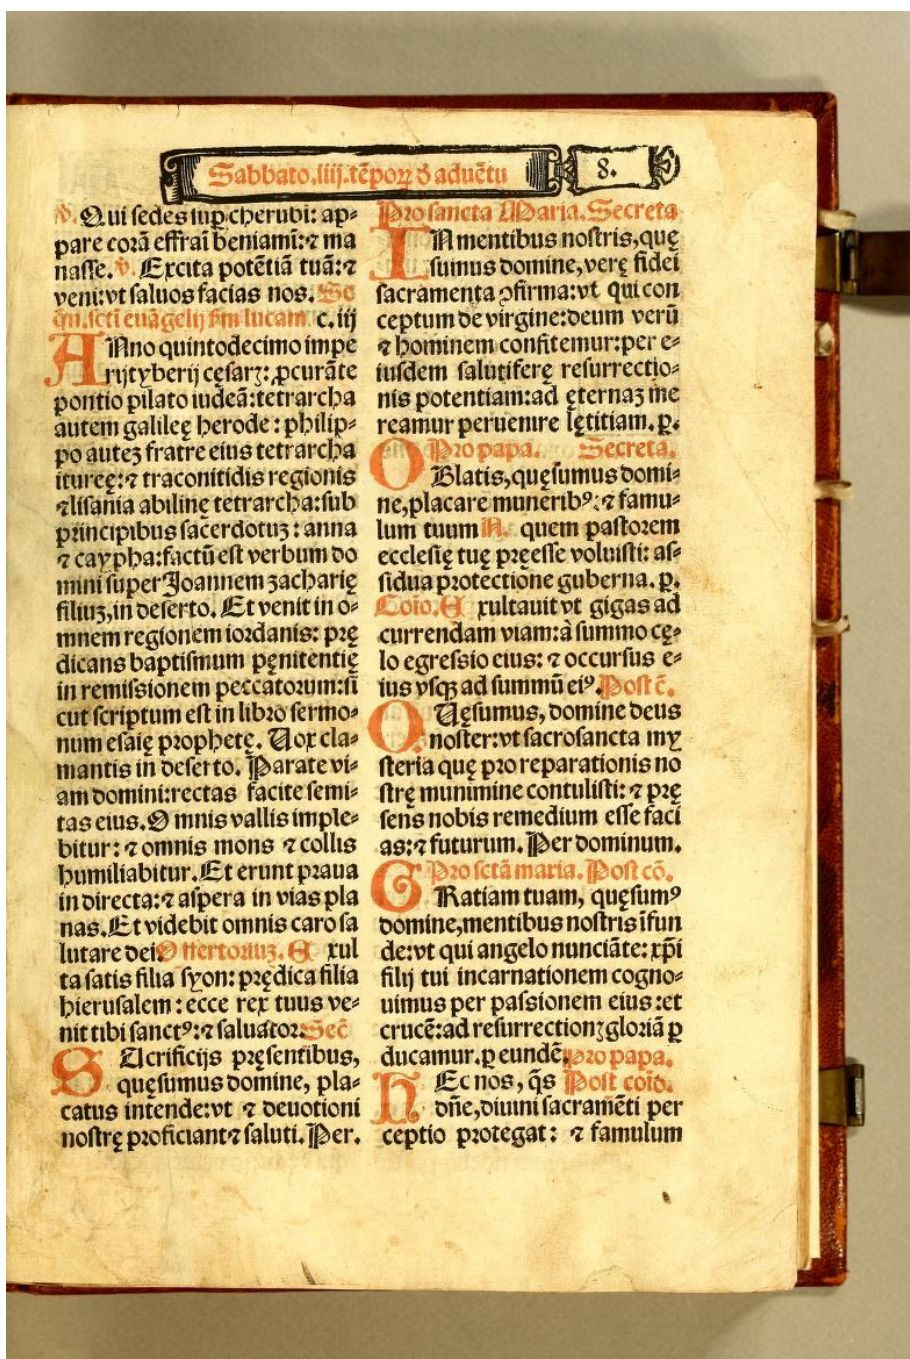 Sabbato.iiij.tẽporꝝ ꝺ aduẽtu
8.
℣. Qui sedes suꝑ cherubi: ap⸗
pare corã effraĩ beniamĩ: ⁊ ma
nasse. ℣. Excita potẽtiã tuã: ⁊
veni: vt saluos facias nos. Se
qñ. scti euãgelij scḋm lucam c. iij
ANno quintodecimo impe
rij tyberij cęsarꝫ: ꝓcurãte
pontio pilato iudeã: tetrarcha
autem galileę herode: philip⸗
po auteꝫ fratre eius tetrarcha
itureę: ⁊ traconitidis regionis
⁊ lisania abilinę tetrarcha: sub
principibus sacerdotuꝫ: anna
⁊ caypha: factũ est verbum do
mini super Joannem zacharię
filiuꝫ, in deserto. Et venit in o⸗
mnem regionem iordanis: prę
dicans baptismum pęnitentię
in remissionem peccatorum: si
cut scriptum est in libro sermo⸗
num esaię prophetę. Uox cla⸗
mantis in deserto. Parate vi⸗
am domini: rectas facite semi⸗
tas eius. Omnis vallis imple⸗
bitur: ⁊ omnis mons ⁊ collis
humiliabitur. Et erunt praua
in directa: ⁊ aspera in vias pla
nas. Et videbit omnis caro sa
lutare dei. Offertoriuꝫ. Exul
ta satis filia syon: prędica filia
hierusalem: ecce rex tuus ve⸗
nit tibi sanctꝰ: ⁊ saluator. Secͬ
SAcrificijs pręsentibus,
quęsumus domine, pla⸗
catus intende: vt ⁊ deuotioni
nostrę proficiant ⁊ saluti. Per.
Pro sancta Maria. Secreta
IN mentibus nostris, quę
sumus domine, verę fidei
sacramenta ꝯfirma: vt qui con
ceptum de virgine: deum verũ
⁊ hominem confitemur: per e⸗
iusdem salutiferę resurrectio⸗
nis potentiam: ad ęternaꝫ me
reamur peruenire lętitiam. ꝑ.
Pro papa. Secreta.
OBlatis, quęsumus domi⸗
ne, placare muneribꝰ: ⁊ famu⸗
lum tuum N. quem pastorem
ecclesię tuę pręesse voluisti: as⸗
sidua protectione guberna. ꝑ.
Coĩo. Exultauit vt gigas ad
currendam viam: à summo cę⸗
lo egressio eius: ⁊ occursus e⸗
ius vsqꝫ ad summũ eiꝰ. Post c̃.
QUęsumus, domine deus
noster: vt sacrosancta my
steria quę pro reparationis no
strę munimine contulisti: ⁊ prę
sens nobis remedium esse faci
as: ⁊ futurum. Per dominum.
Pro sctã maria. Post cõ.
GRatiam tuam, quęsumꝰ
domine, mentibus nostris ĩfun
de: vt qui angelo nunciãte: xp̃i
filij tui incarnationem cogno⸗
uimus per passionem eius: et
crucẽ: ad resurrectionꝫ gloriã ꝑ
ducamur. ꝑ eundẽ. Pro papa.
HEc nos, q̃s Post coĩo.
dñe, diuini sacramẽti per
ceptio protegat: ⁊ famulum